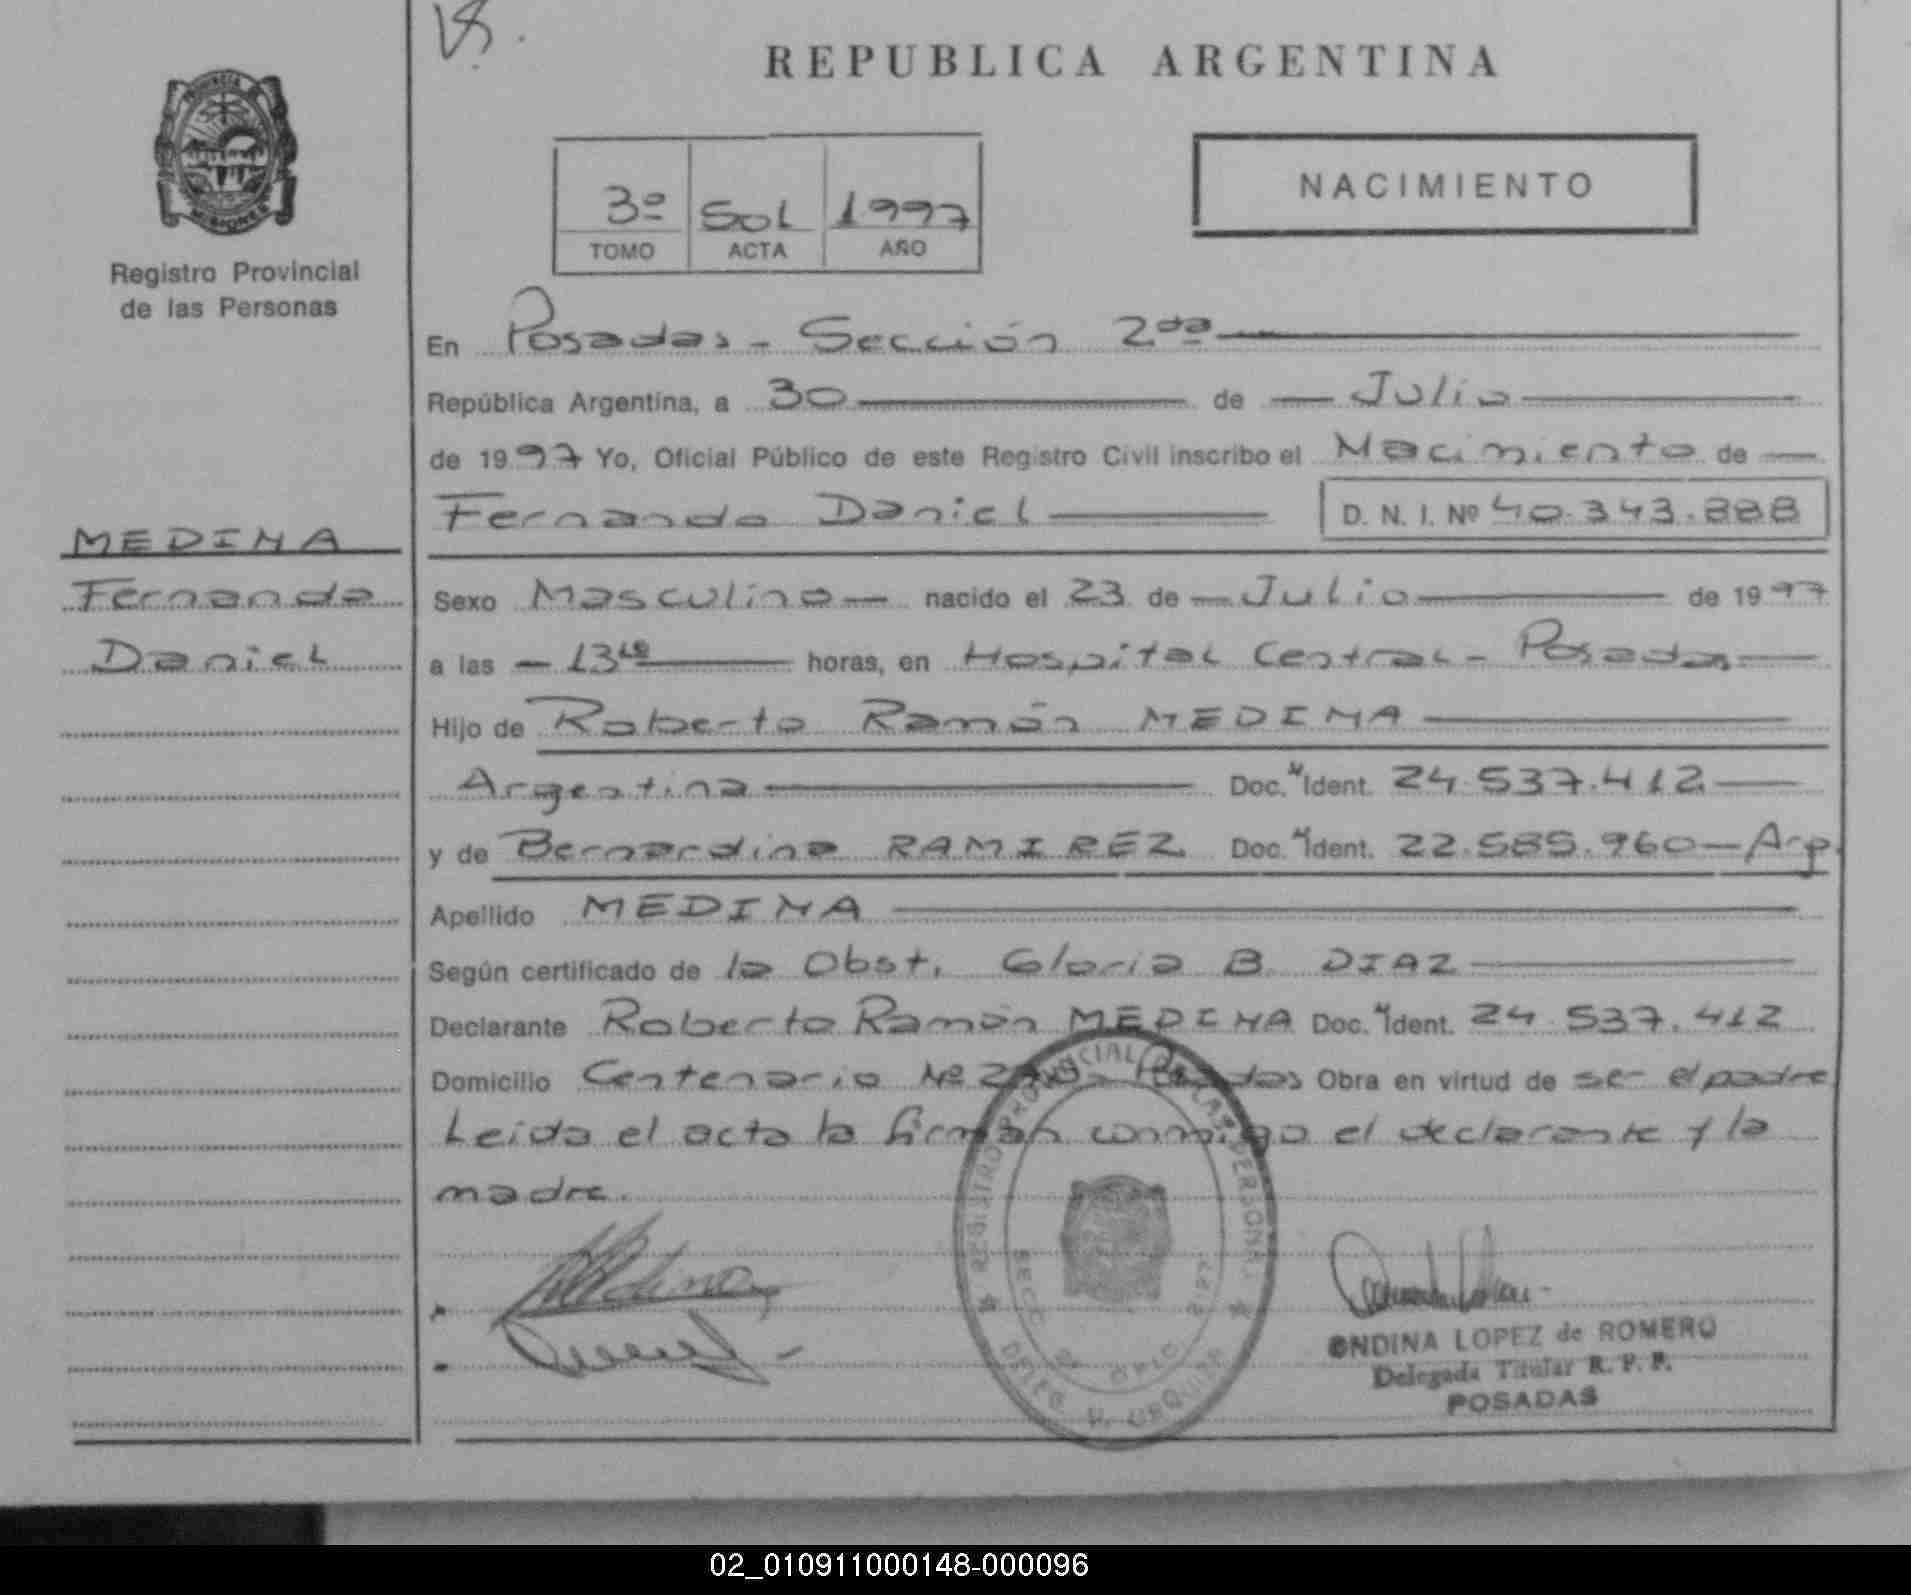 REPUBLICA ARGENTINA
PROVINCIA DE
MISIONES
Registro Provincial
de las Personas
3º 501 1997
TOMO ACTA AÑO
NACIMIENTO
En Posadas - Sección 2da
República Argentina, a 30 de Julio
de 1997 Yo, Oficial Público de este Registro Civil inscribo el Nacimiento de
Fernando Daniel D. N. I. Nº 40.343.888
MEDINA
Fernando
Daniel
Sexo Masculino nacido el 23 de Julio de 1997
a las 13 horas, en Hospital Central - Posadas
Hijo de Roberto Ramón MEDINA
Argentina Doc. Ident. 24.537.412
y de Bernardina RAMIREZ Doc. Ident. 22.585.960 - Arg.
Apellido MEDINA
Según certificado de la Obst. Gloria B. DIAZ
Declarante Roberto Ramón MEDINA Doc. Ident. 24.537.412
Domicilio Centenario Nº Posadas Obra en virtud de ser el padre
Leida el acta la firman conmigo el declarante y la
madre.
REGISTRO PROVINCIAL DE LAS PERSONAS
DELEG. H. URQUIZA
ONDINA LOPEZ de ROMERO
Delegada Titular R. P. P.
POSADAS
02_010911000148-000096